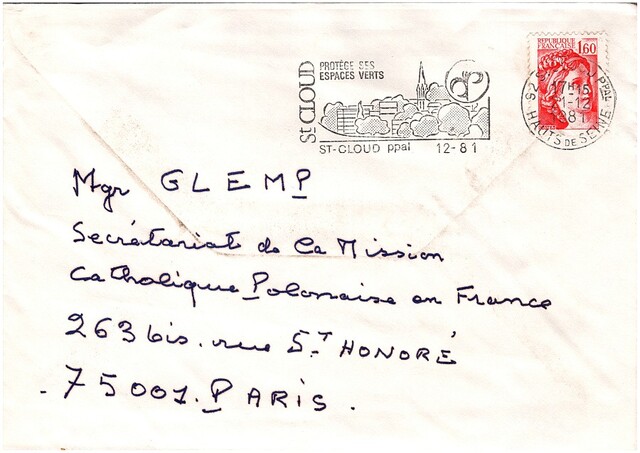 St CLOUD
PROTÈGE SES
ESPACES VERTS
ST-CLOUD ppal 12-81
REPUBLIQUE
FRANÇAISE
1,60
PPAL
17H15
-12
81
HAUTS DE SEINE
Mgr GLEMP
Secrétariat de la Mission
Catholique Polonaise en France
263 bis. rue ST HONORÉ
- 75001. PARIS.